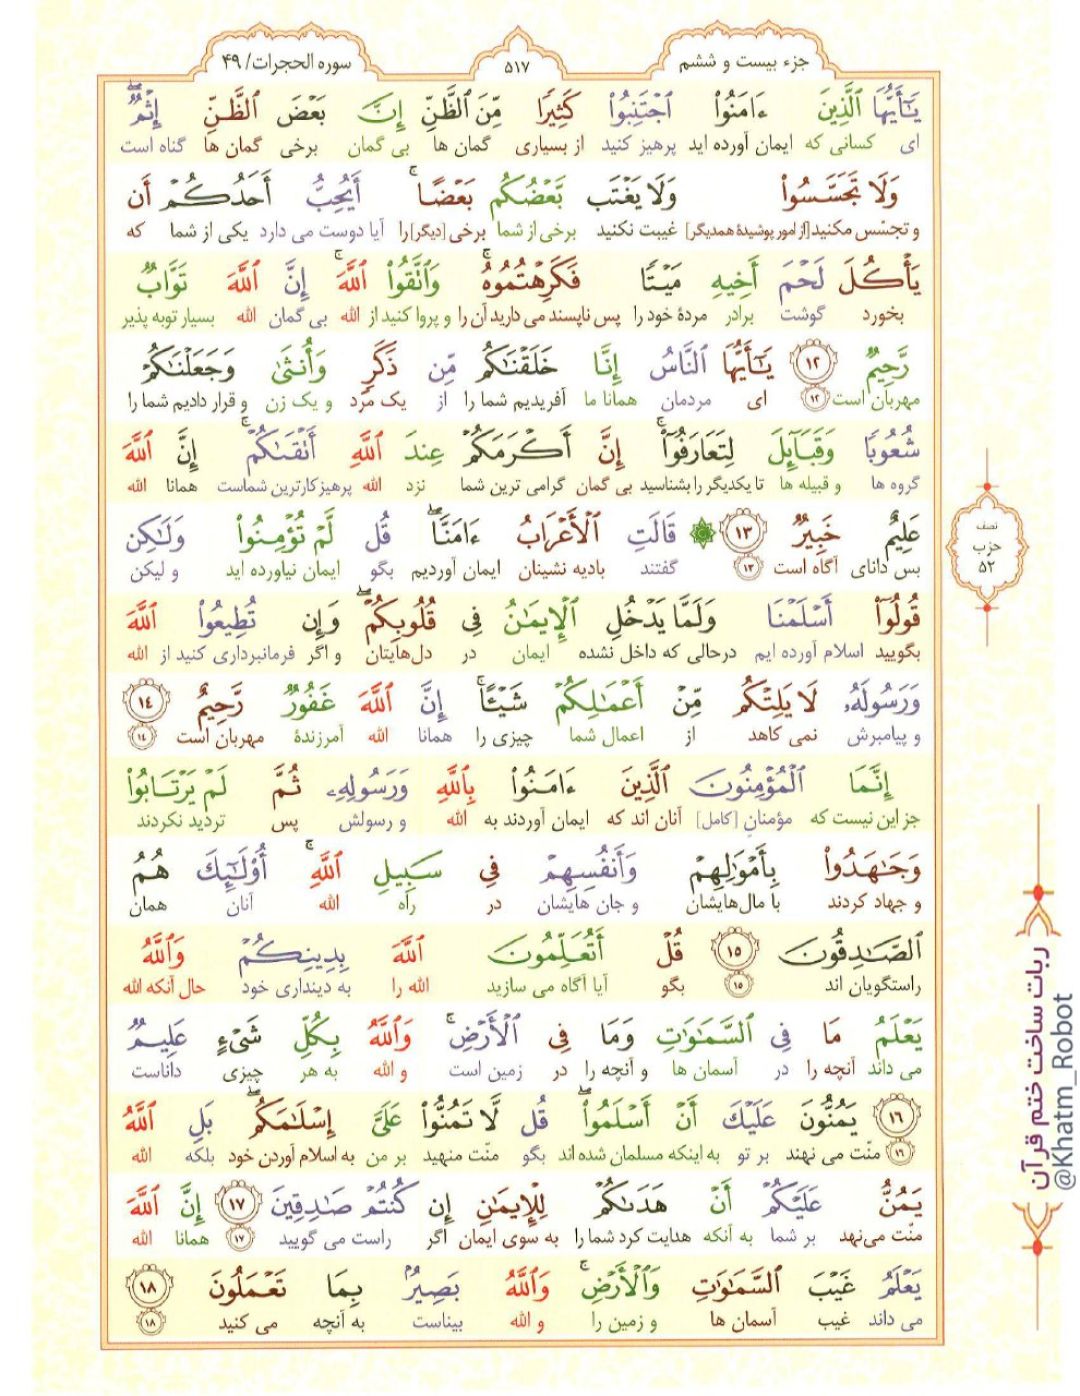 جزء بیست و ششم
۵۱۷
سوره الحجرات/ ۴۹
يَـٰٓأَيُّهَا ٱلَّذِينَ ءَامَنُوا۟ ٱجْتَنِبُوا۟ كَثِيرًا مِّنَ ٱلظَّنِّ إِنَّ بَعْضَ ٱلظَّنِّ إِثْمٌ ۖ
ای کسانی که ایمان آورده اید پرهیز کنید از بسیاری گمان ها بی گمان برخی گمان ها گناه است
وَلَا تَجَسَّسُوا۟ وَلَا يَغْتَب بَّعْضُكُم بَعْضًا ۚ أَيُحِبُّ أَحَدُكُمْ أَن
و تجسّس مکنید [از امور پوشیدۀ همدیگر] غیبت نکنید برخی از شما برخی [دیگر] را آیا دوست می دارد یکی از شما که
يَأْكُلَ لَحْمَ أَخِيهِ مَيْتًا فَكَرِهْتُمُوهُ ۚ وَٱتَّقُوا۟ ٱللَّهَ ۚ إِنَّ ٱللَّهَ تَوَّابٌ
بخورد گوشت برادر مردۀ خود را پس ناپسند می دارید آن را و پروا کنید از الله بی گمان الله بسیار توبه پذیر
رَّحِيمٌ ١٢ يَـٰٓأَيُّهَا ٱلنَّاسُ إِنَّا خَلَقْنَـٰكُم مِّن ذَكَرٍ وَأُنثَىٰ وَجَعَلْنَـٰكُمْ
مهربان است ۱۲ ای مردمان همانا ما آفریدیم شما را از یک مرد و یک زن و قرار دادیم شما را
شُعُوبًا وَقَبَآئِلَ لِتَعَارَفُوٓا۟ ۚ إِنَّ أَكْرَمَكُمْ عِندَ ٱللَّهِ أَتْقَىٰكُمْ ۚ إِنَّ ٱللَّهَ
گروه ها و قبیله ها تا یکدیگر را بشناسید بی گمان گرامی ترین شما نزد الله پرهیزکارترین شماست همانا الله
عَلِيمٌ خَبِيرٌ ١٣ قَالَتِ ٱلْأَعْرَابُ ءَامَنَّا ۖ قُل لَّمْ تُؤْمِنُوا۟ وَلَـٰكِن
بس دانای آگاه است ۱۳ گفتند بادیه نشینان ایمان آوردیم بگو ایمان نیاورده اید و لیکن
نصف
حزب
۵۲
قُولُوٓا۟ أَسْلَمْنَا وَلَمَّا يَدْخُلِ ٱلْإِيمَـٰنُ فِى قُلُوبِكُمْ ۖ وَإِن تُطِيعُوا۟ ٱللَّهَ
بگویید اسلام آورده ایم درحالی که داخل نشده ایمان در دل‌هایتان و اگر فرمانبرداری کنید از الله
وَرَسُولَهُۥ لَا يَلِتْكُم مِّنْ أَعْمَـٰلِكُمْ شَيْـًٔا ۚ إِنَّ ٱللَّهَ غَفُورٌ رَّحِيمٌ ١٤
و پیامبرش نمی کاهد از اعمال شما چیزی را همانا الله آمرزندۀ مهربان است ۱۴
إِنَّمَا ٱلْمُؤْمِنُونَ ٱلَّذِينَ ءَامَنُوا۟ بِٱللَّهِ وَرَسُولِهِۦ ثُمَّ لَمْ يَرْتَابُوا۟
جز این نیست که مؤمنانِ [کامل] آنان اند که ایمان آوردند به الله و رسولش پس تردید نکردند
وَجَـٰهَدُوا۟ بِأَمْوَٰلِهِمْ وَأَنفُسِهِمْ فِى سَبِيلِ ٱللَّهِ ۚ أُو۟لَـٰٓئِكَ هُمُ
و جهاد کردند با مال‌هایشان و جان هایشان در راه الله آنان همان
ٱلصَّـٰدِقُونَ ١٥ قُلْ أَتُعَلِّمُونَ ٱللَّهَ بِدِينِكُمْ وَٱللَّهُ
راستگویان اند ۱۵ بگو آیا آگاه می سازید الله را به دینداری خود حال آنکه الله
يَعْلَمُ مَا فِى ٱلسَّمَـٰوَٰتِ وَمَا فِى ٱلْأَرْضِ ۚ وَٱللَّهُ بِكُلِّ شَىْءٍ عَلِيمٌ
می داند آنچه را در آسمان ها و آنچه را در زمین است و الله به هر چیزی داناست
١٦ يَمُنُّونَ عَلَيْكَ أَنْ أَسْلَمُوا۟ ۖ قُل لَّا تَمُنُّوا۟ عَلَىَّ إِسْلَـٰمَكُم ۖ بَلِ ٱللَّهُ
۱۶ منّت می نهند بر تو به اینکه مسلمان شده اند بگو منّت منهید بر من به اسلام آوردن خود بلکه الله
يَمُنُّ عَلَيْكُمْ أَنْ هَدَىٰكُمْ لِلْإِيمَـٰنِ إِن كُنتُمْ صَـٰدِقِينَ ١٧ إِنَّ ٱللَّهَ
منّت می‌نهد بر شما به آنکه هدایت کرد شما را به سوی ایمان اگر راست می گویید ۱۷ همانا الله
يَعْلَمُ غَيْبَ ٱلسَّمَـٰوَٰتِ وَٱلْأَرْضِ ۚ وَٱللَّهُ بَصِيرٌۢ بِمَا تَعْمَلُونَ ١٨
می داند غیب آسمان ها و زمین را و الله بیناست به آنچه می کنید ۱۸
ربات ساخت ختم قرآن
@Khatm_Robot